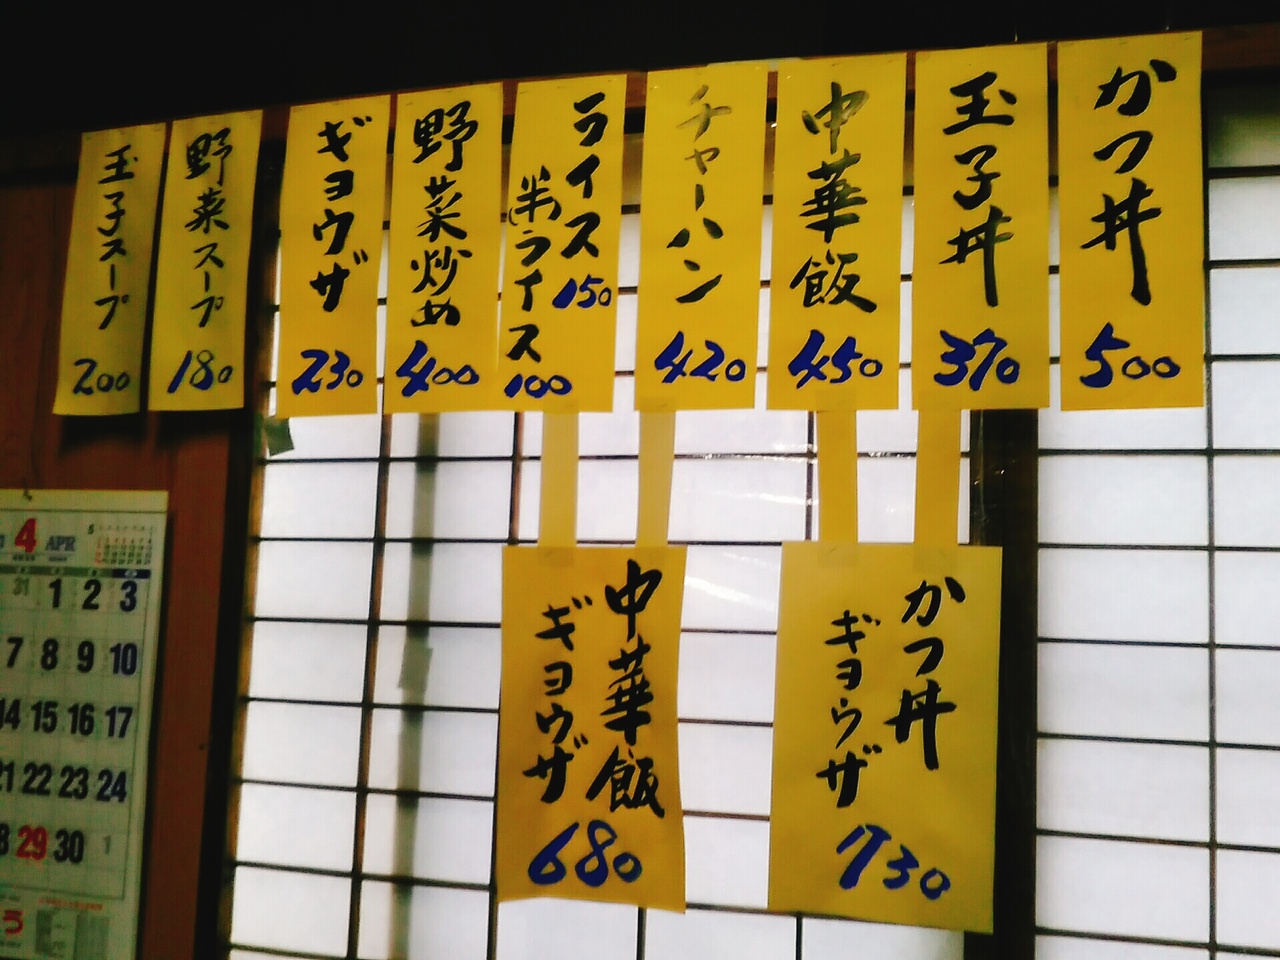 かつ丼
500
玉子丼
370
中華飯
450
チャーハン
420
ライス
150
半ライス
100
野菜炒め
400
ギョウザ
230
野菜スープ
180
玉子スープ
200
かつ丼
ギョウザ
730
中華飯
ギョウザ
680
4 APR
5
31 1 2 3
7 8 9 10
14 15 16 17
21 22 23 24
29 30 1
う